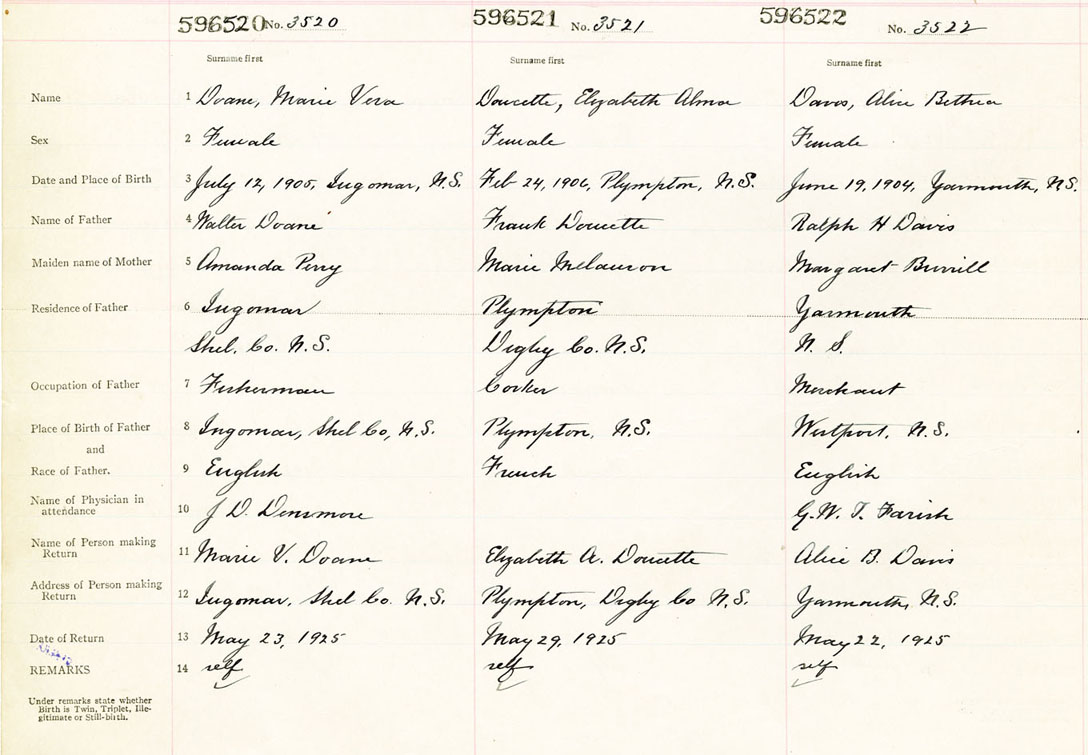 596520 No. 3520 596521 No. 3521 596522 No. 3522
Surname first Surname first Surname first
Name 1 Doane, Marie Vera Doucette, Elizabeth Alma Davis, Alice Bethea
Sex 2 Female Female Female
Date and Place of Birth 3 July 12, 1905, Ingomar, N.S. Feb 24, 1906, Plympton, N.S. June 19, 1904, Yarmouth, N.S.
Name of Father 4 Walter Doane Frank Doucette Ralph H Davis
Maiden name of Mother 5 Amanda Perry Marie Melanson Margaret Burrill
Residence of Father 6 Ingomar Plympton Yarmouth
Shel. Co. N.S. Digby Co. N.S. N. S.
Occupation of Father 7 Fisherman Merchant
Place of Birth of Father 8 Ingomar, Shel Co, N.S. Plympton, N.S. Westport, N.S.
and
Race of Father. 9 English French English
Name of Physician in
attendance 10 J D. Densmore G. W. T. Farish
Name of Person making
Return 11 Marie V. Doane Elizabeth A. Doucette Alice B. Davis
Address of Person making
Return 12 Ingomar, Shel Co. N.S. Plympton, Digby Co N.S. Yarmouth, N.S.
Date of Return 13 May 23, 1925 May 29, 1925 May 22, 1925
REMARKS 14 self self self
Under remarks state whether
Birth is Twin, Triplet, Ille-
gitimate or Still-birth.